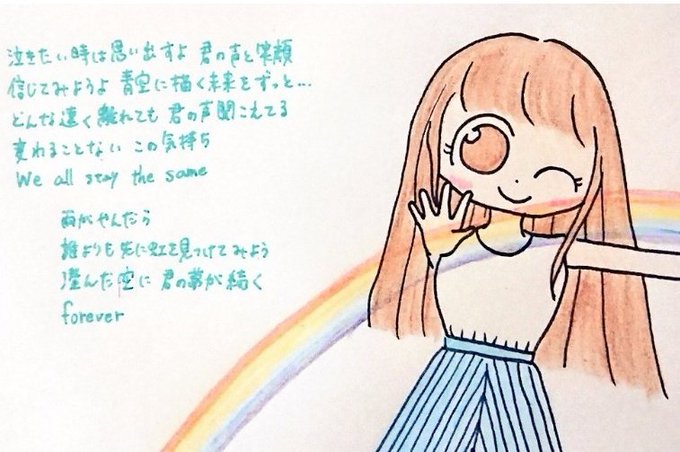 泣きたい時は思い出すよ 君の声と笑顔
信じてみようよ 青空に描く未来をずっと...
どんな遠く離れても 君の声聞こえてる
変わることない この気持ち
We all stay the same
雨がやんだら
誰よりも先に虹を見つけてみよう
澄んだ空に 君の夢が続く
forever